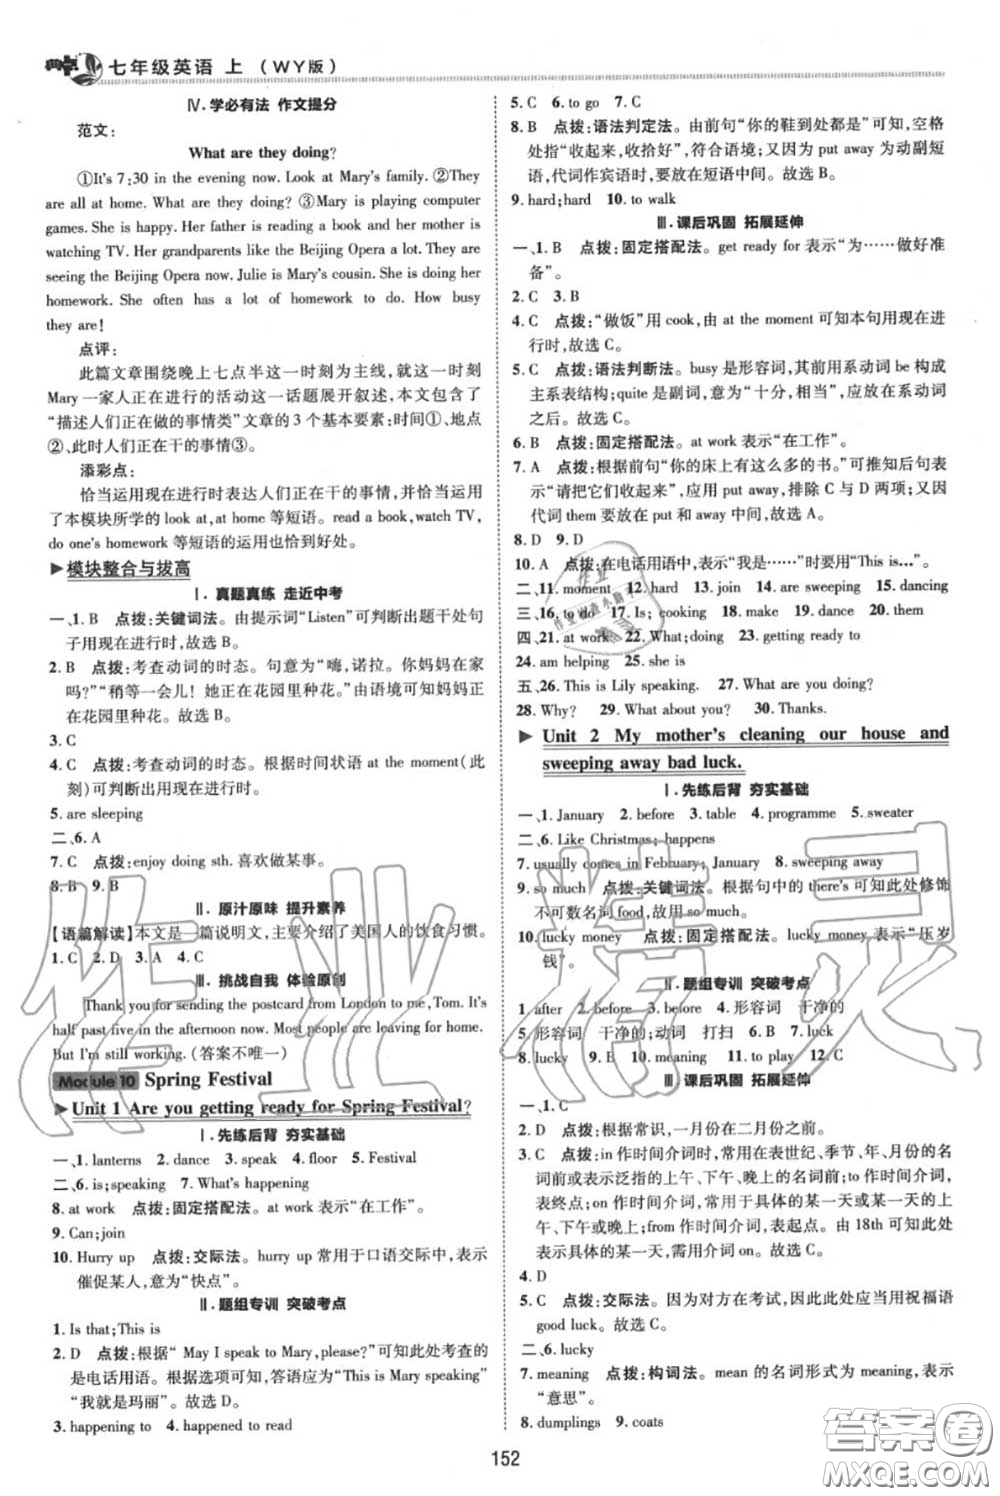 典中点 七年级英语 上 (WY版)
Ⅳ.学必有法 作文提分
范文:
What are they doing?
①It's 7:30 in the evening now. Look at Mary's family. ②They
are all at home. What are they doing? ③Mary is playing computer
games. She is happy. Her father is reading a book and her mother is
watching TV. Her grandparents like the Beijing Opera a lot. They are
seeing the Beijing Opera now. Julie is Mary's cousin. She is doing her
homework. She often has a lot of homework to do. How busy
they are!
点评:
此篇文章围绕晚上七点半这一时刻为主线,就这一时刻
Mary一家人正在进行的活动这一话题展开叙述。本文包含了
“描述人们正在做的事情类”文章的3个基本要素:时间①、地点
②、此时人们正在干的事情③。
添彩点:
恰当运用现在进行时表达人们正在干的事情,并恰当运用
了本模块所学的look at,at home等短语。read a book,watch TV,
do one's homework等短语的运用也恰到好处。
模块整合与拔高
Ⅰ.真题真练 走近中考
一、1. B 点拨:关键词法。由提示词“Listen”可判断出题干处句
子用现在进行时。故选B。
2. B 点拨:考查动词的时态。句意为“嗨,诺拉。你妈妈在家
吗?”“稍等一会儿!她正在花园里种花。”由语境可知妈妈正
在花园里种花。故选B。
3. C
4. C 点拨:考查动词的时态。根据时间状语at the moment(此
刻)可判断出用现在进行时。
5. are sleeping
二、6. A
7. C 点拨:enjoy doing sth.喜欢做某事。
8. B 9. B
Ⅱ.原汁原味 提升素养
【语篇解读】本文是一篇说明文,主要介绍了美国人的饮食习惯。
1. C 2. D 3. A 4. C
Ⅲ.挑战自我 体验原创
Thank you for sending the postcard from London to me, Tom. It's
half past five in the afternoon now. Most people are leaving for home.
But I'm still working.(答案不唯一)
Module 10 Spring Festival
Unit 1 Are you getting ready for Spring Festival?
Ⅰ.先练后背 夯实基础
一、1. lanterns 2. dance 3. speak 4. floor 5. Festival
二、6. is;speaking 7. What's happening
8. at work 点拨:固定搭配法。at work表示“在工作”。
9. Can;join
10. Hurry up 点拨:交际法。hurry up常用于口语交际中,表示
催促某人,意为“快点”。
Ⅱ.题组专训 突破考点
1. Is that;This is
2. D 点拨:根据“May I speak to Mary,please?”可知此处考查的
是电话用语。根据选项可知,答语应为“This is Mary speaking”
“我就是玛丽”。故选D。
3. happening to 4. happened to read
5. C 6. to go 7. C
8. B 点拨:语法判定法。由前句“你的鞋到处都是”可知,空格
处指“收起来,收拾好”,符合语境;又因为put away为动副短
语,代词作宾语时,要放在短语中间。故选B。
9. hard;hard 10. to walk
Ⅲ.课后巩固 拓展延伸
一、1. B 点拨:固定搭配法。get ready for表示“为……做好准
备”。
2. C 3. B
4. C 点拨:“做饭”用cook,由at the moment可知本句用现在进
行时,故选C。
5. C 点拨:语法判断法。busy是形容词,前用系动词be构成
主系表结构;quite是副词,意为“十分,相当”,应放在系动词
之后。故选C。
6. B 点拨:固定搭配法。at work表示“在工作”。
7. A 点拨:根据前句“你的床上有这么多的书。”可推知后句表
示“请把它们收起来”,应用put away,排除C与D两项;又因
代词them要放在put和away中间,故选A。
8. D 9. D
10. A 点拨:在电话用语中,表示“我是……”时要用“This is…”。
二、11. moment 12. hard 13. join 14. are sweeping 15. dancing
三、16. to do 17. Is;cooking 18. make 19. dance 20. them
四、21. at work 22. What;doing 23. getting ready to
24. am helping 25. she is
五、26. This is Lily speaking. 27. What are you doing?
28. Why? 29. What about you? 30. Thanks.
Unit 2 My mother's cleaning our house and
sweeping away bad luck.
Ⅰ.先练后背 夯实基础
一、1. January 2. before 3. table 4. programme 5. sweater
二、6. Like Christmas;happens
7. usually comes in February;January 8. sweeping away
9. so much 点拨:关键词法。根据句中的there's可知此处修饰
不可数名词food,故用so much。
10. lucky money 点拨:固定搭配法。lucky money表示“压岁
钱”。
Ⅱ.题组专训 突破考点
1. after 2. before 3. before 4. 形容词 干净的
5. 形容词 干净的;动词 打扫 6. B 7. luck
8. lucky 9. B 10. meaning 11. to play 12. C
Ⅲ.课后巩固 拓展延伸
一、1. C
2. D 点拨:根据常识,一月份在二月份之前。
3. C 点拨:in作时间介词时,常用在表世纪、季节、年、月份的名
词前或表泛指的上午、下午、晚上的名词前;to作时间介词,
表终点;on作时间介词,常用于具体的某一天或某一天的上
午、下午或晚上;from作时间介词,表起点。由18th可知此处
表示具体的某一天,需用介词on。故选C。
4. D
5. C 点拨:交际法。因为对方在考试,因此此处应当用祝福语
good luck。故选C。
二、6. lucky
7. meaning 点拨:构词法。mean的名词形式为meaning,表示
“意思”。
8. dumplings 9. coats
152
作业精灵
答案圈
MXQE.COM